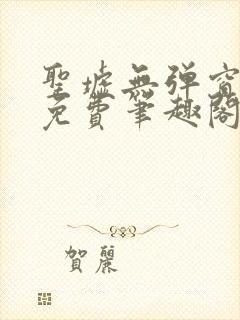 聖墟無弹窗
免費筆趣閣
賀麗